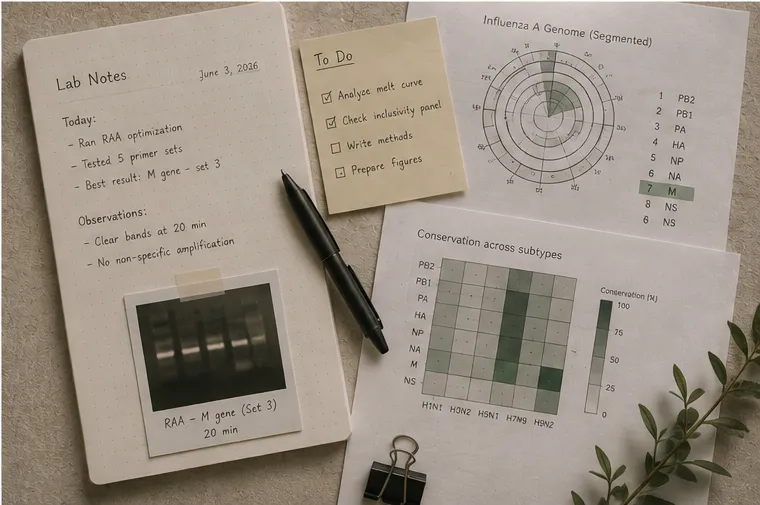 Lab Notes
June 3, 2026
Today:
- Ran RAA optimization
- Tested 5 primer sets
- Best result: M gene - set 3
Observations:
- Clear bands at 20 min
- No non-specific amplification
RAA - M gene (Set 3)
20 min
To Do
Analyze melt curve
Check inclusivity panel
Write methods
Prepare figures
Influenza A Genome (Segmented)
1 PB2
2 PB1
3 PA
4 HA
5 NP
6 NA
7 M
8 NS
6 NS
Conservation across subtypes
PB2
PB1
PA
HA
NP
NA
M
NS
H1N1 H9N2
Conservation
100
75
50
25
0